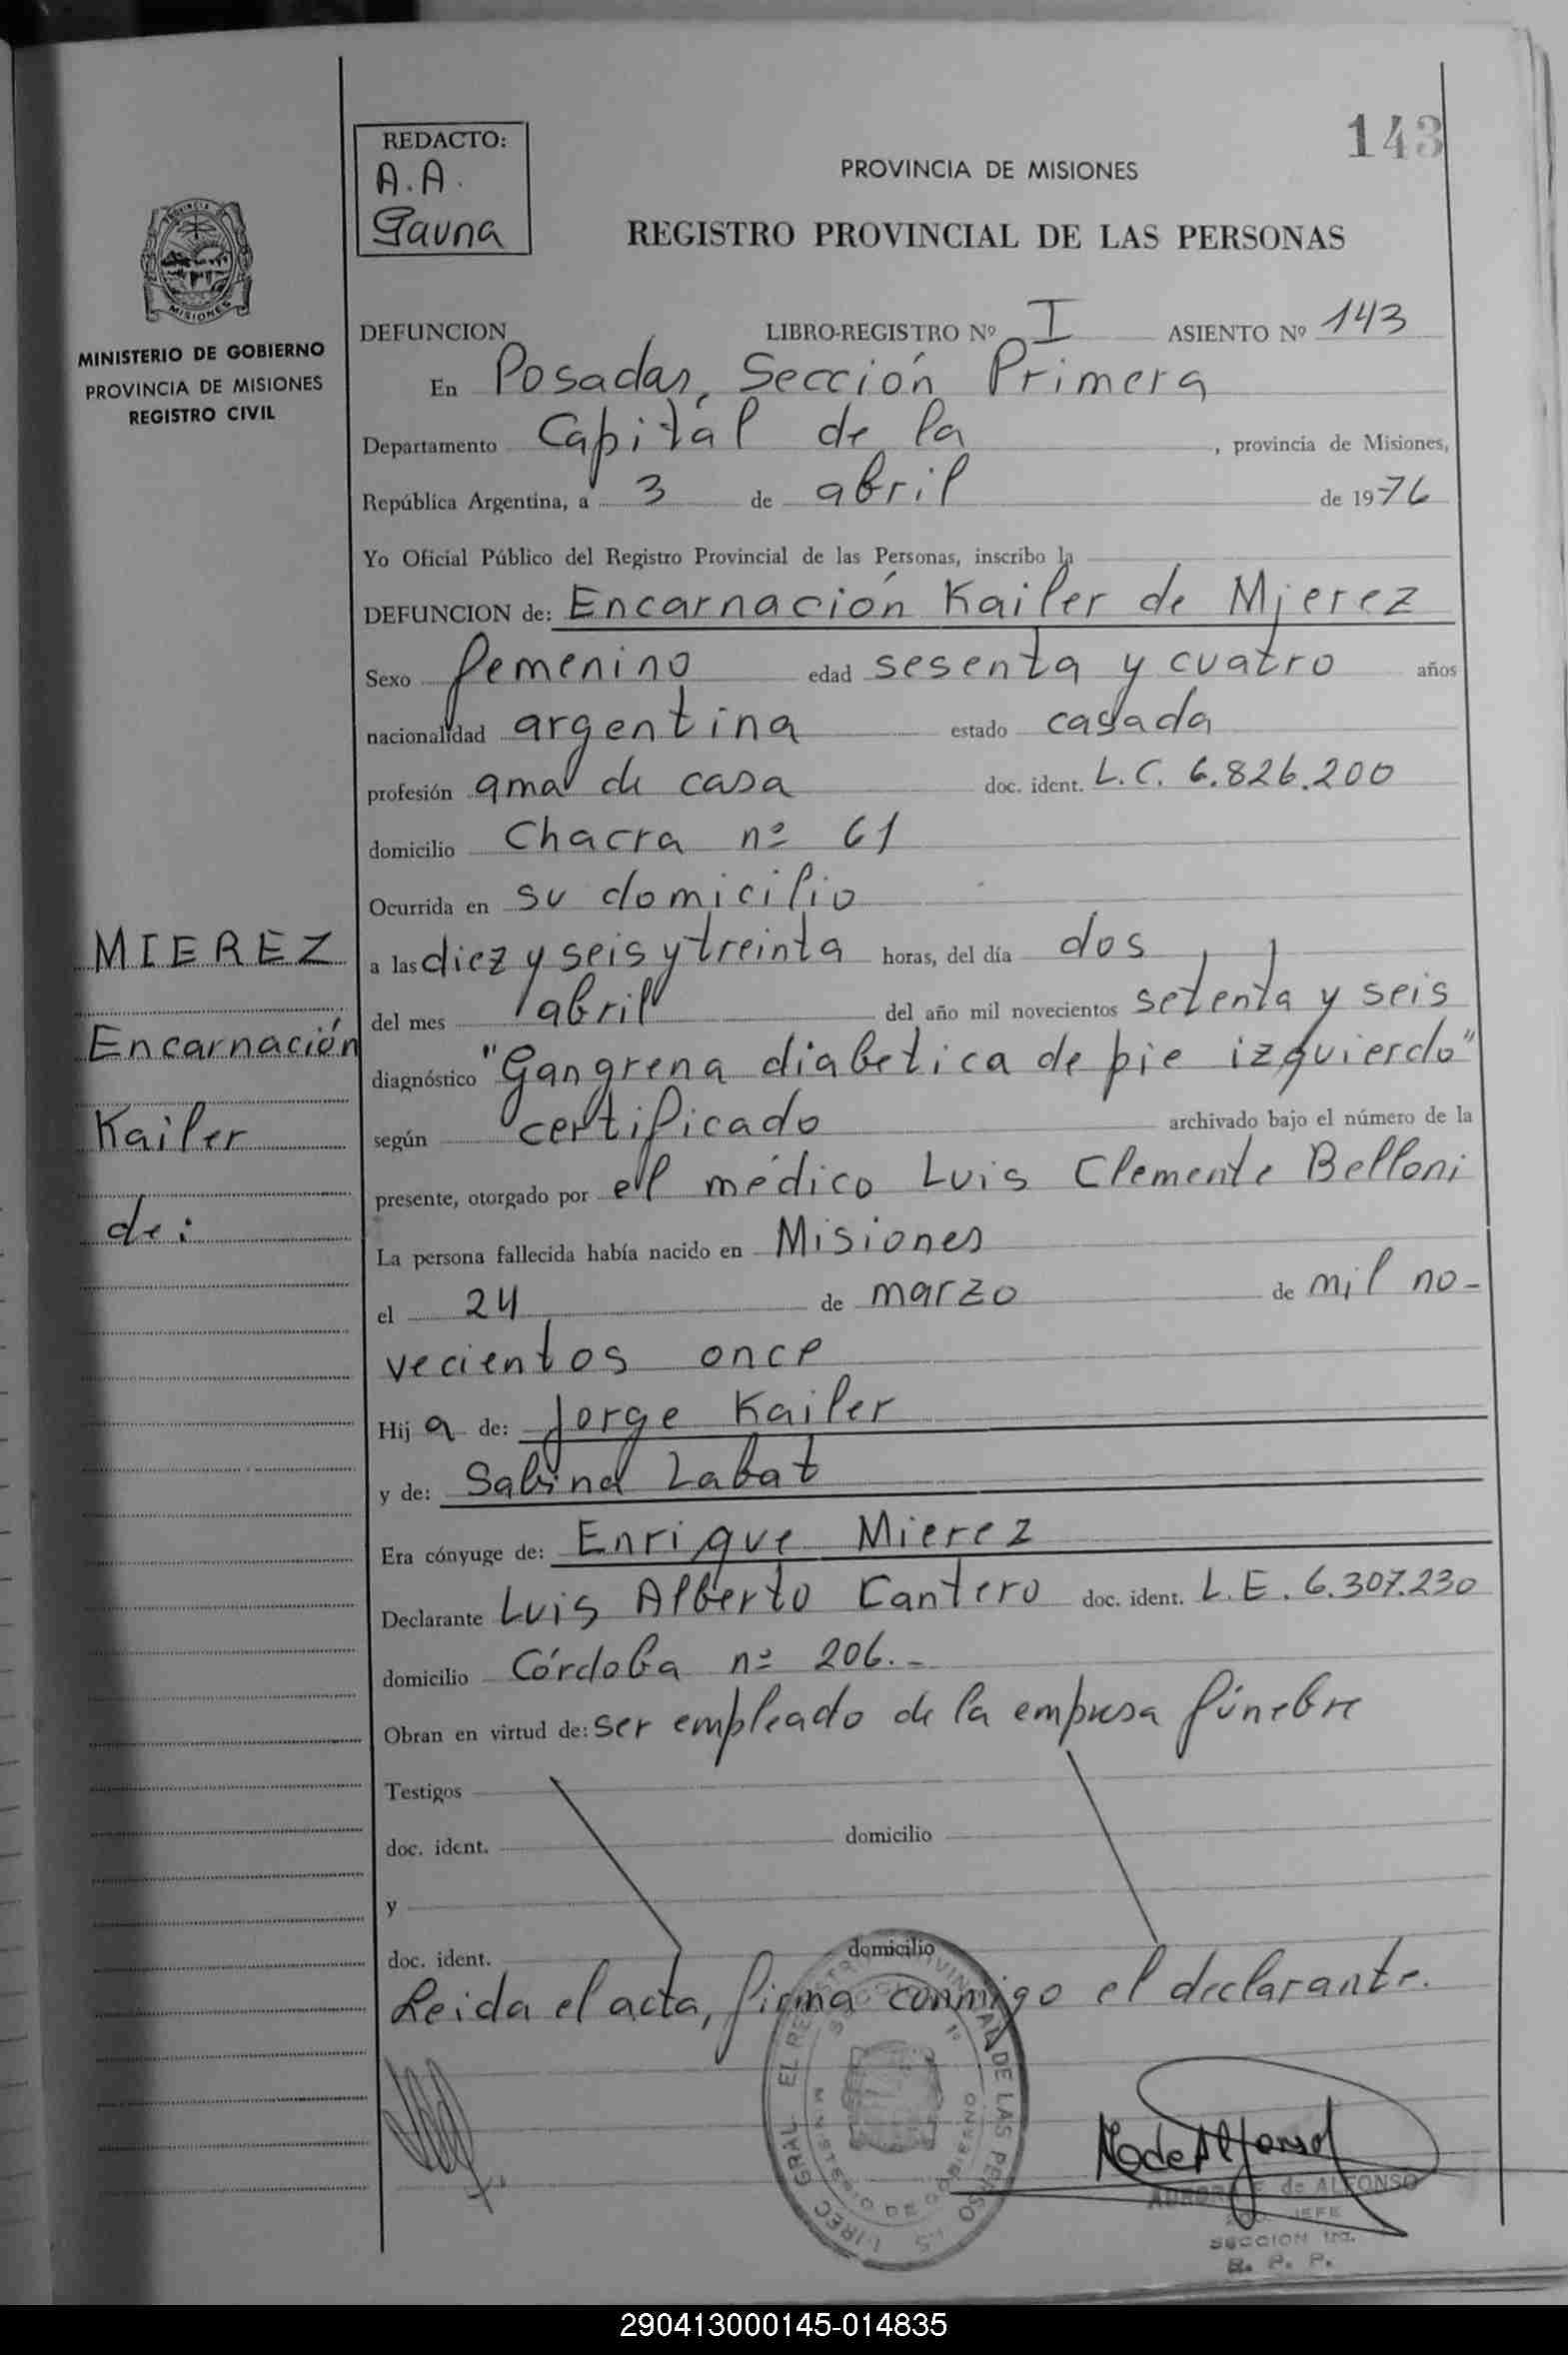 143
REDACTO:
A. A.
Gauna
PROVINCIA DE MISIONES
REGISTRO PROVINCIAL DE LAS PERSONAS
PROVINCIA
MISIONES
MINISTERIO DE GOBIERNO
PROVINCIA DE MISIONES
REGISTRO CIVIL
DEFUNCION LIBRO-REGISTRO Nº I ASIENTO Nº 143
En Posadas, Sección Primera
Departamento Capital de la , provincia de Misiones,
República Argentina, a 3 de abril de 1976
Yo Oficial Público del Registro Provincial de las Personas, inscribo la
DEFUNCION de: Encarnación Kailer de Mierez
Sexo femenino edad sesenta y cuatro años
nacionalidad argentina estado casada
profesión ama de casa doc. ident. L.C. 6.826.200
domicilio Chacra nº 61
Ocurrida en su domicilio
a las diez y seis y treinta horas, del día dos
del mes abril del año mil novecientos setenta y seis
diagnóstico "Gangrena diabetica de pie izquierdo"
según certificado archivado bajo el número de la
presente, otorgado por el médico Luis Clemente Belloni
La persona fallecida había nacido en Misiones
el 24 de marzo de mil no-
vecientos once
Hija de: Jorge Kailer
y de: Sabina Labat
Era cónyuge de: Enrique Mierez
Declarante Luis Alberto Cantero doc. ident. L.E. 6.307.230
domicilio Córdoba nº 206.-
Obran en virtud de: ser empleado de la empresa fúnebre
Testigos
doc. ident. domicilio
y
doc. ident. domicilio
Leida el acta, firma conmigo el declarante.
MIEREZ
Encarnación
Kailer
de:
de ALFONSO
JEFE
SECCION 1ra.
R. P. P.
290413000145-014835